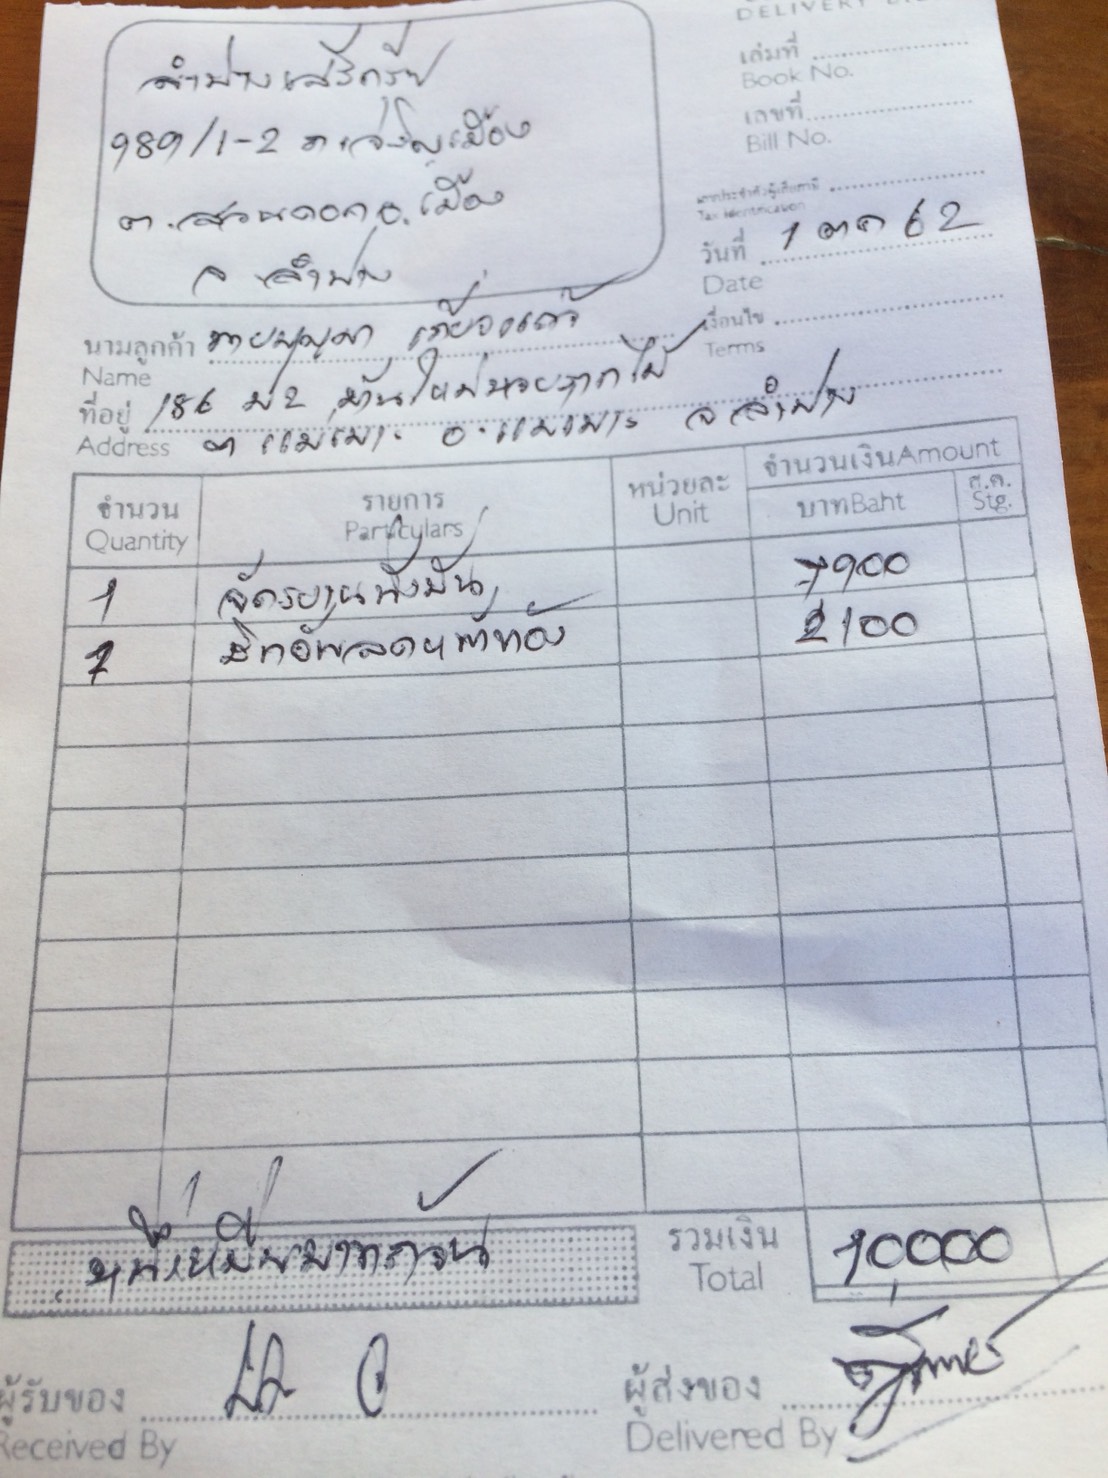 ลำปางเสรีภัณฑ์
989/1-2 ถ.
ต.สวนดอก อ.เมือง
จ ลำปาง
DELIVERY
เล่มที่
Book No.
เลขที่
Bill No.
เลขประจำตัวผู้เสียภาษี
Tax Identification
วันที่ 1 ตค 62
Date
เงื่อนไข
Terms
นามลูกค้า นายบุญมา
Name
ที่อยู่ 186 ม2 บ้านใหม่นาแขม
Address ต แม่เมาะ อ.แม่เมาะ จ ลำปาง
จำนวน รายการ หน่วยละ จำนวนเงิน Amount
Quantity Particulars Unit บาท Baht ส.ต. Stg.
1 จักรยานนั่งปั่น 7900
1 2100
หนึ่งหมื่นบาทถ้วน รวมเงิน 10000
Total
ผู้รับของ ผู้ส่งของ
Received By Delivered By